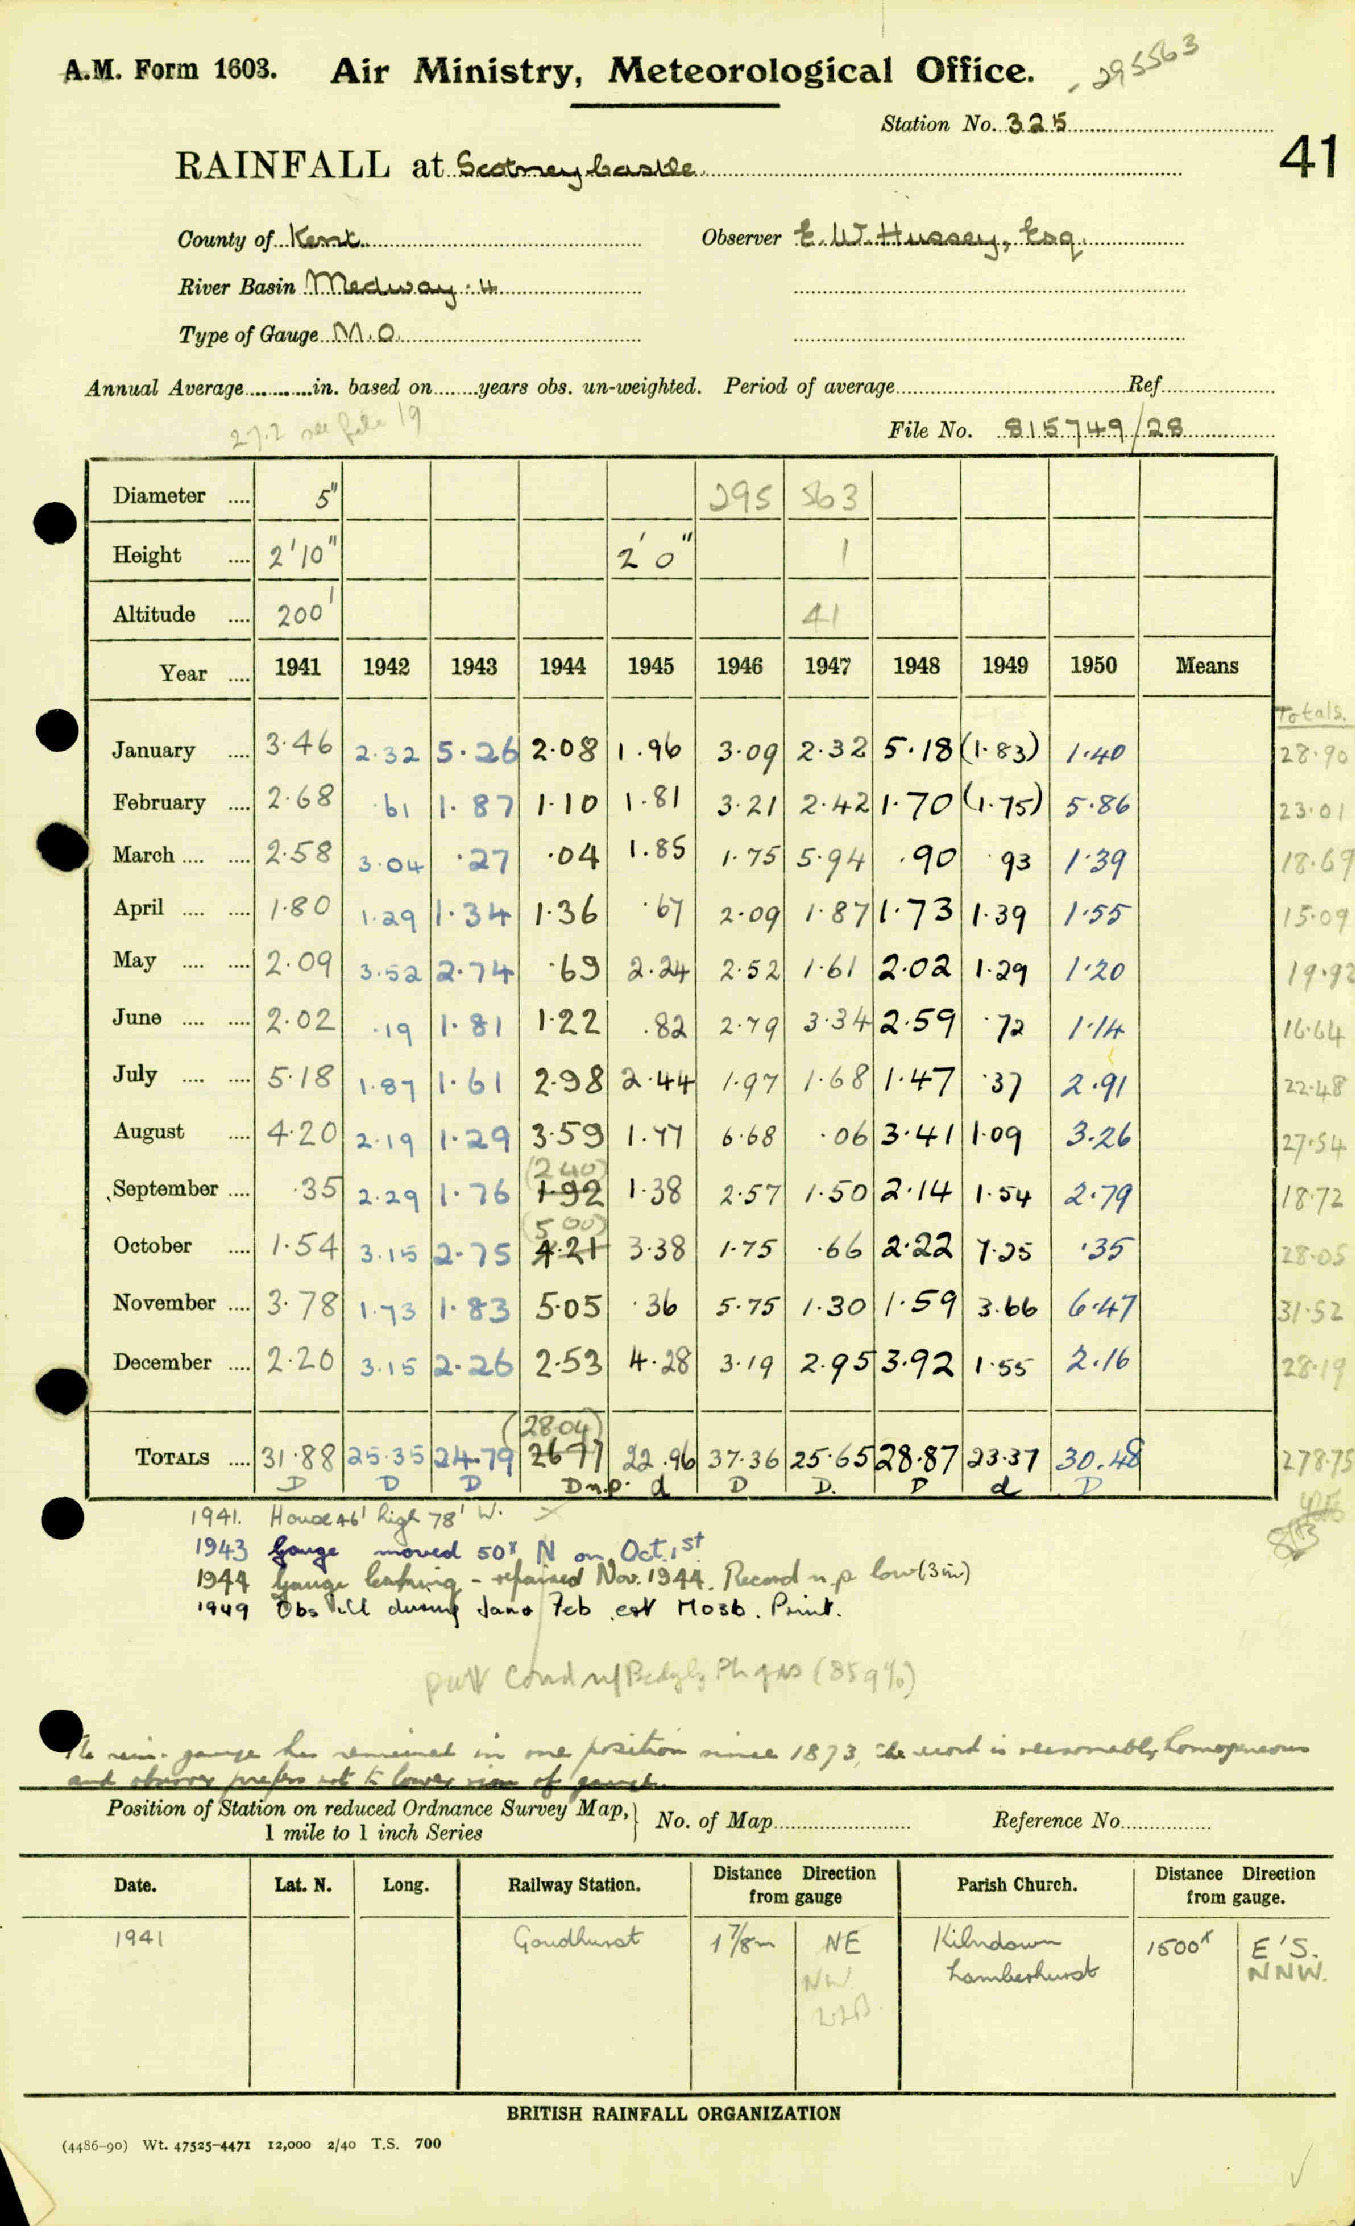 A.M. Form 1603. Air Ministry, Meteorological Office. 295563
Station No. 325
41
RAINFALL at Scotney Castle
County of Kent Observer E. W. Hussey, Esq.
River Basin Medway. 4
Type of Gauge M.O.
Annual Average............in. based on.......years obs. un-weighted. Period of average............Ref............
27.2 see file 19
File No. 815749/28
Diameter .... 5" 295 563
Height .... 2'10" 2'0" 1
Altitude .... 200' 41
Year .... 1941 1942 1943 1944 1945 1946 1947 1948 1949 1950 Means
Totals.
January .... 3.46 2.32 5.26 2.08 1.96 3.09 2.32 5.18 (1.83) 1.40 28.90
February .... 2.68 .61 1.87 1.10 1.81 3.21 2.42 1.70 (1.75) 5.86 23.01
March .... .... 2.58 3.04 .27 .04 1.85 1.75 5.94 .90 .93 1.39 18.69
April .... .... 1.80 1.29 1.34 1.36 .67 2.09 1.87 1.73 1.39 1.55 15.09
May .... .... 2.09 3.52 2.74 .69 2.24 2.52 1.61 2.02 1.29 1.20 19.92
June .... .... 2.02 .19 1.81 1.22 .82 2.79 3.34 2.59 .72 1.14 16.64
July .... .... 5.18 1.87 1.61 2.98 2.44 1.97 1.68 1.47 .37 2.91 22.48
August .... 4.20 2.19 1.29 3.59 1.77 6.68 .06 3.41 1.09 3.26 27.54
(2.40)
September .... .35 2.29 1.76 1.92 1.38 2.57 1.50 2.14 1.54 2.79 18.72
(5.00)
October .... 1.54 3.15 2.75 4.21 3.38 1.75 .66 2.22 7.25 .35 28.05
November .... 3.78 1.73 1.83 5.05 .36 5.75 1.30 1.59 3.66 6.47 31.52
December .... 2.20 3.15 2.26 2.53 4.28 3.19 2.95 3.92 1.55 2.16 28.19
(28.04)
TOTALS .... 31.88 25.35 24.79 26.77 22.96 37.36 25.65 28.87 23.37 30.48 278.75
D D D D n.p. d D D. D d D
1941. House 46' high 78' W.
1943 Gauge moved 50x N on Oct. 1st
1944 Gauge leaking - repaired Nov. 1944. Record n.p low (3in)
1949 Obs ill during Jan & Feb est MO3b. Print.
(859%)
The rain-gauge has remained in one position since 1873, the record is reasonably homogeneous
and observer prefers not to lower rim of gauge.
Position of Station on reduced Ordnance Survey Map, 1 mile to 1 inch Series } No. of Map............ Reference No............
Date. Lat. N. Long. Railway Station. Distance Direction from gauge Parish Church. Distance Direction from gauge.
1941 Goudhurst 1 7/8m NE Kilndown 1500x E'S.
NW Lamberhurst NNW.
BRITISH RAINFALL ORGANIZATION
(4486-90) Wt. 47525-4471 12,000 2/40 T.S. 700